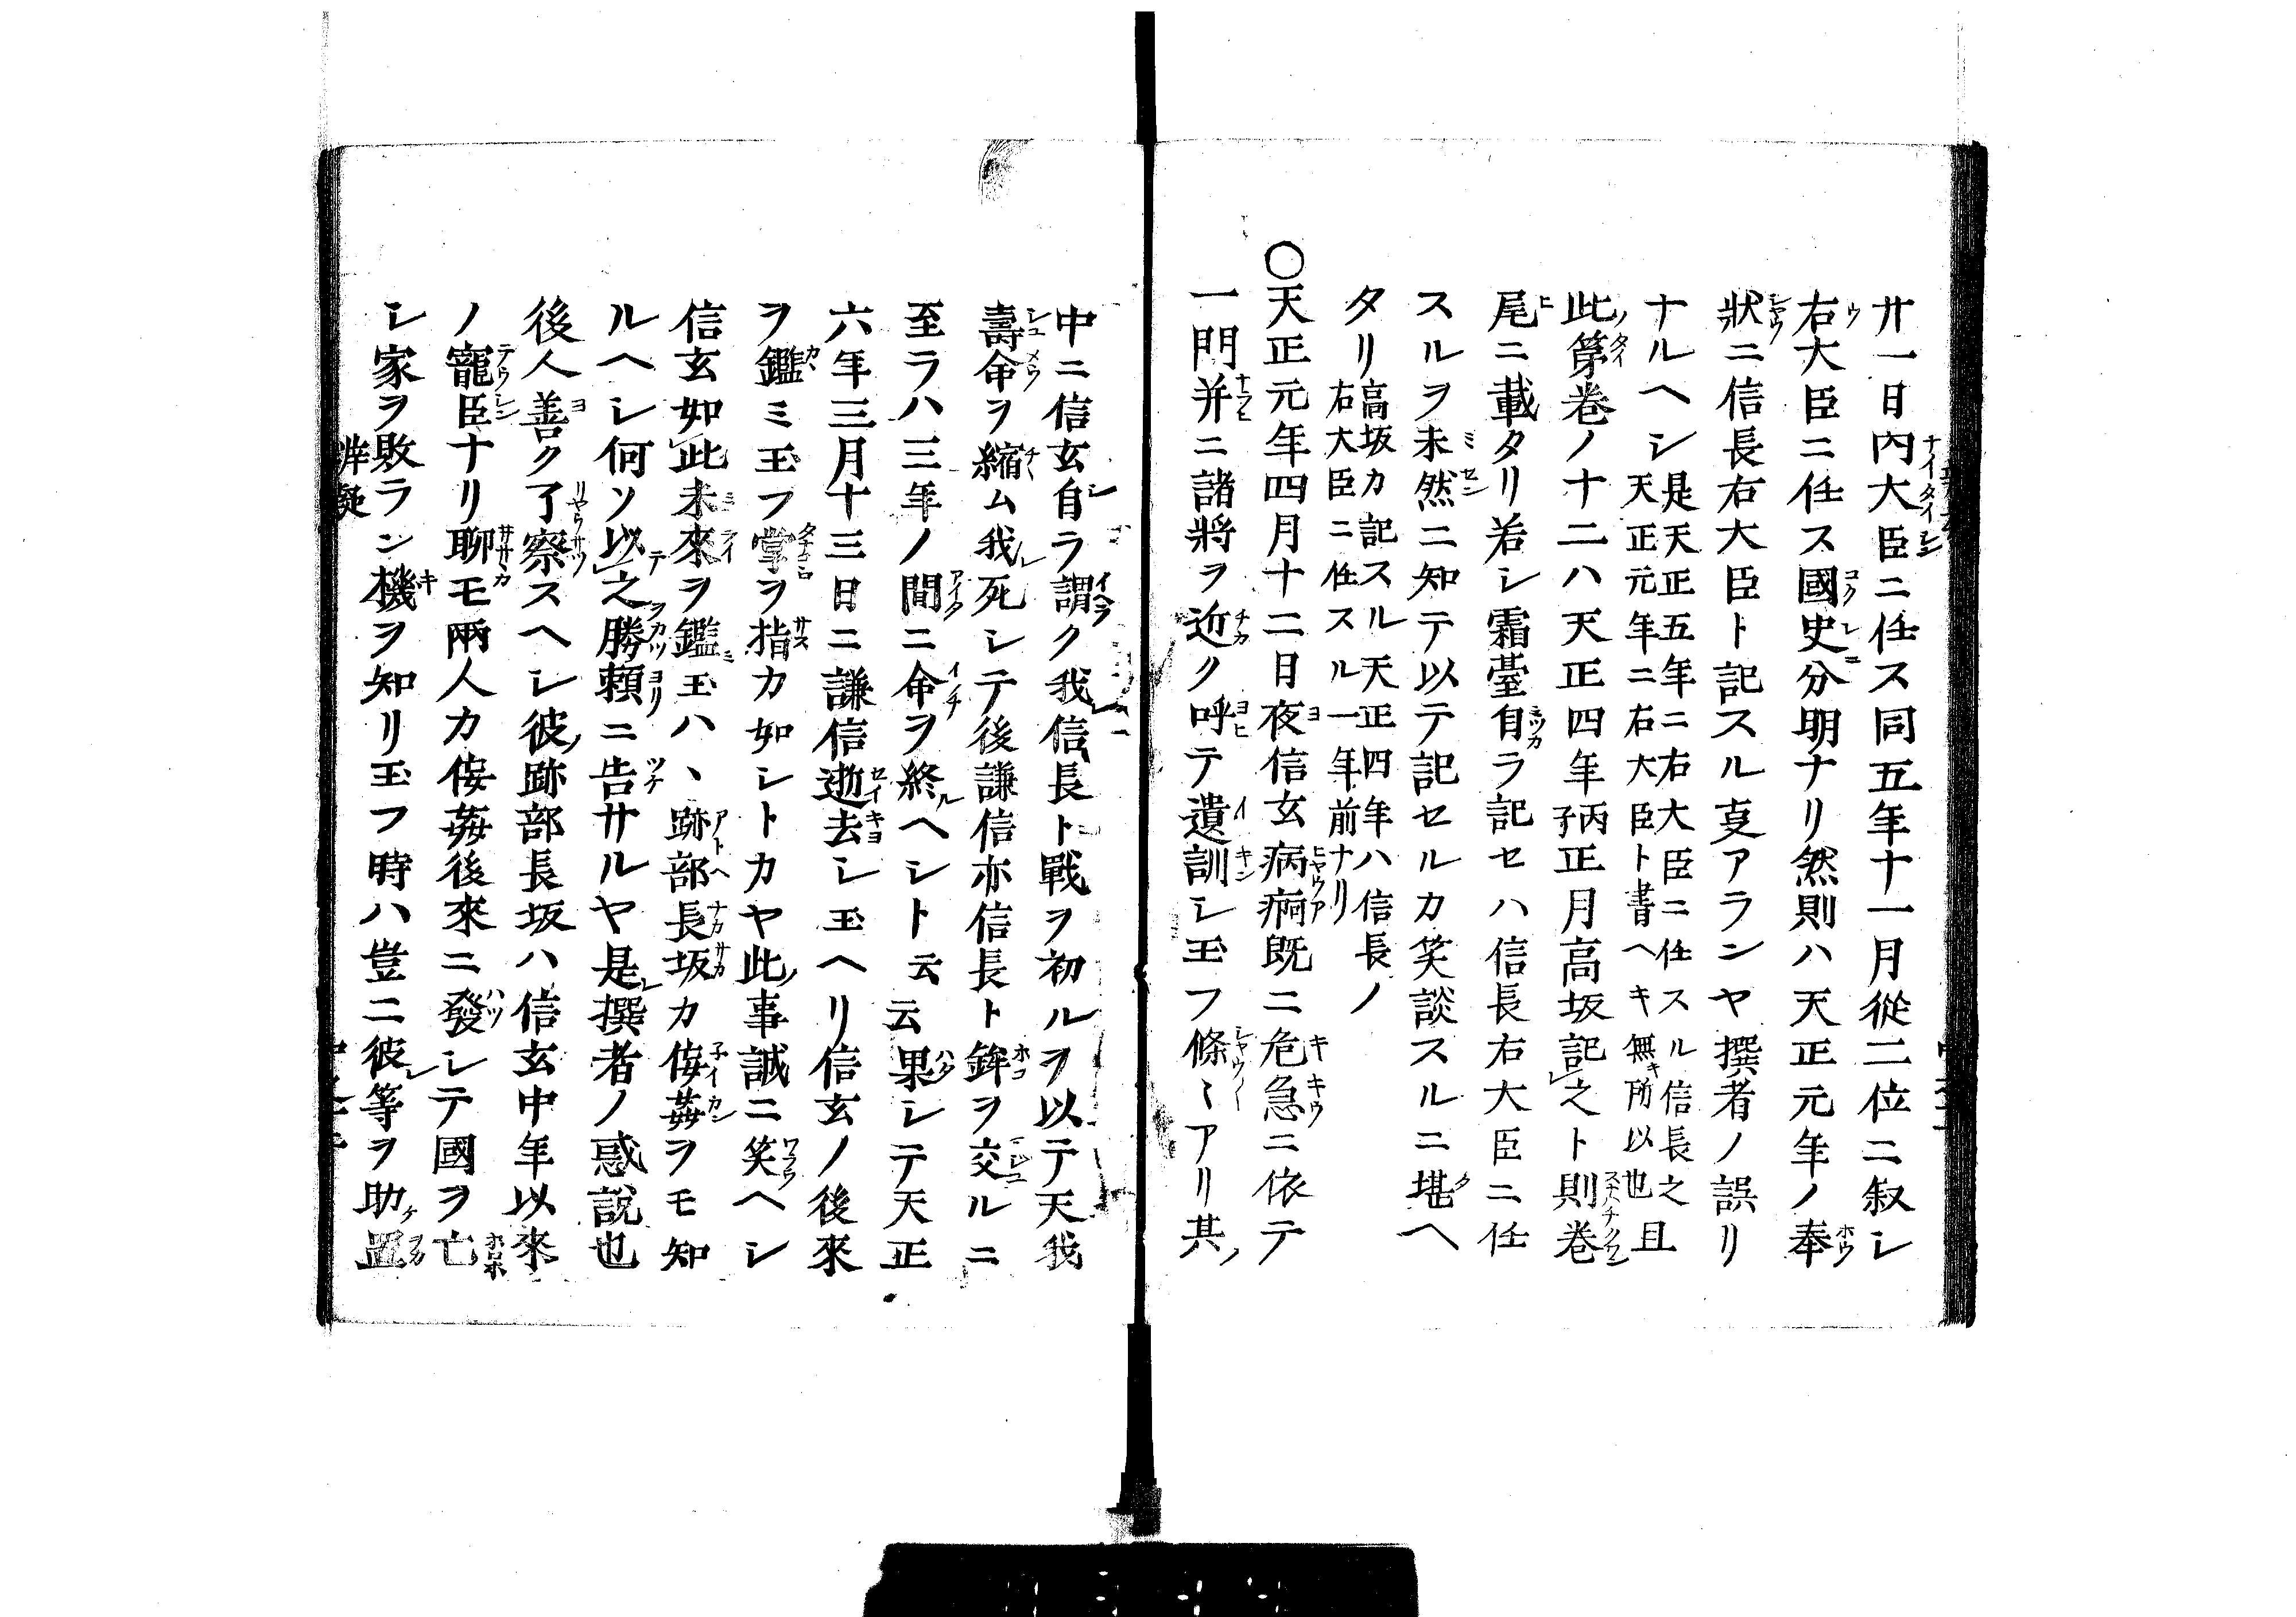 廿一日内大臣ニ任ス同五年十一月從二位ニ叙シ
右大臣ニ任ス國史分明ナリ然則ハ天正元年ノ奉
狀ニ信長右大臣ト記スル㕝アランヤ撰者ノ誤リ
ナルヘシ是天正五年ニ右大臣ニ任スル信長之
天正元年ニ右大臣ト書ヘキ無キ所以也且
此ノ第巻ノ十二ハ天正四年丙子正月高坂記之ト則巻
尾ニ載タリ若シ霜臺自ラ記セハ信長右大臣ニ任
スルヲ未然ニ知テ以テ記セルカ笑談スルニ堪ヘ
タリ高坂カ記スル天正四年ハ信長ノ
右大臣ニ任スル一年前ナリ
〇天正元年四月十二日夜信玄病痾既ニ危急ニ依テ
一門并ニ諸將ヲ近ク呼テ遺訓シ玉フ條〻アリ其ノ
中ニ信玄自ラ謂ク我レ信長ト戰ヲ初ルヲ以テ天我
壽命ヲ縮ム我レ死シテ後謙信亦信長ト鉾ヲ交ルニ
至ラハ三年ノ間ニ命ヲ終ルヘシト云云果シテ天正
六年三月十三日ニ謙信逝去シ玉ヘリ信玄ノ後來
ヲ鑑ミ玉フ掌ヲ指カ如シトカヤ此ノ事誠ニ笑ヘシ
信玄如此未來ヲ鑑玉ハヽ跡部長坂カ侫姦ヲモ知
ルヘシ何ソ以之勝頼ニ告サルヤ是レ撰者ノ惑説也
後人善ク了察スヘシ彼ノ跡部長坂ハ信玄中年以來
ノ寵臣ナリ聊モ兩人カ侫姦後來ニ發シテ國ヲ亡
シ家ヲ敗ラン機ヲ知リ玉フ時ハ豈ニ彼レ等ヲ助ケ置